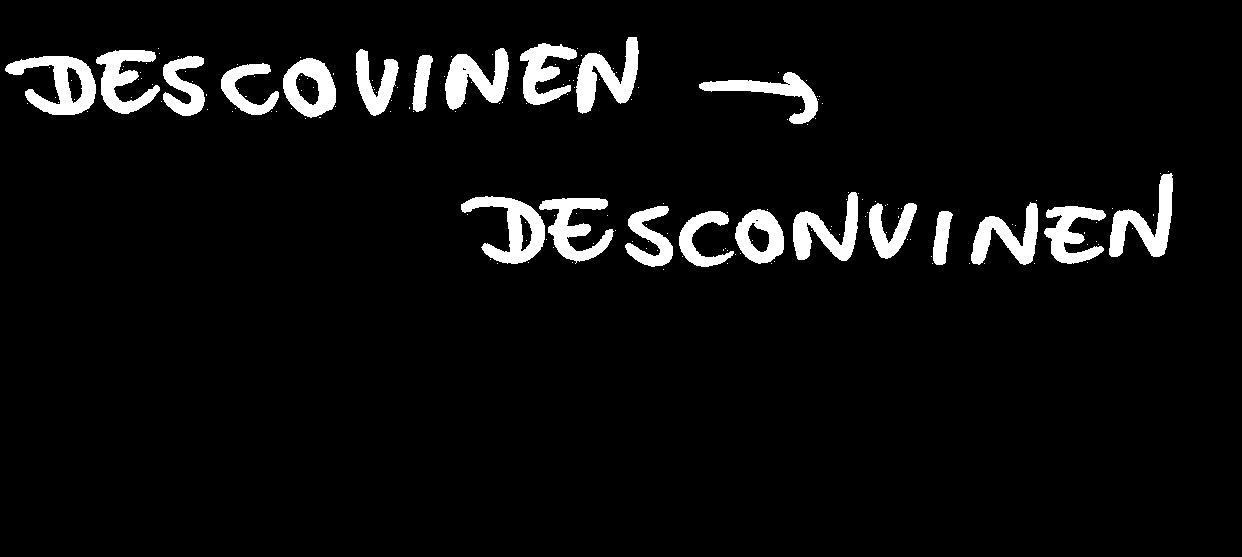 DESCOVINEN →
DESCONVINEN